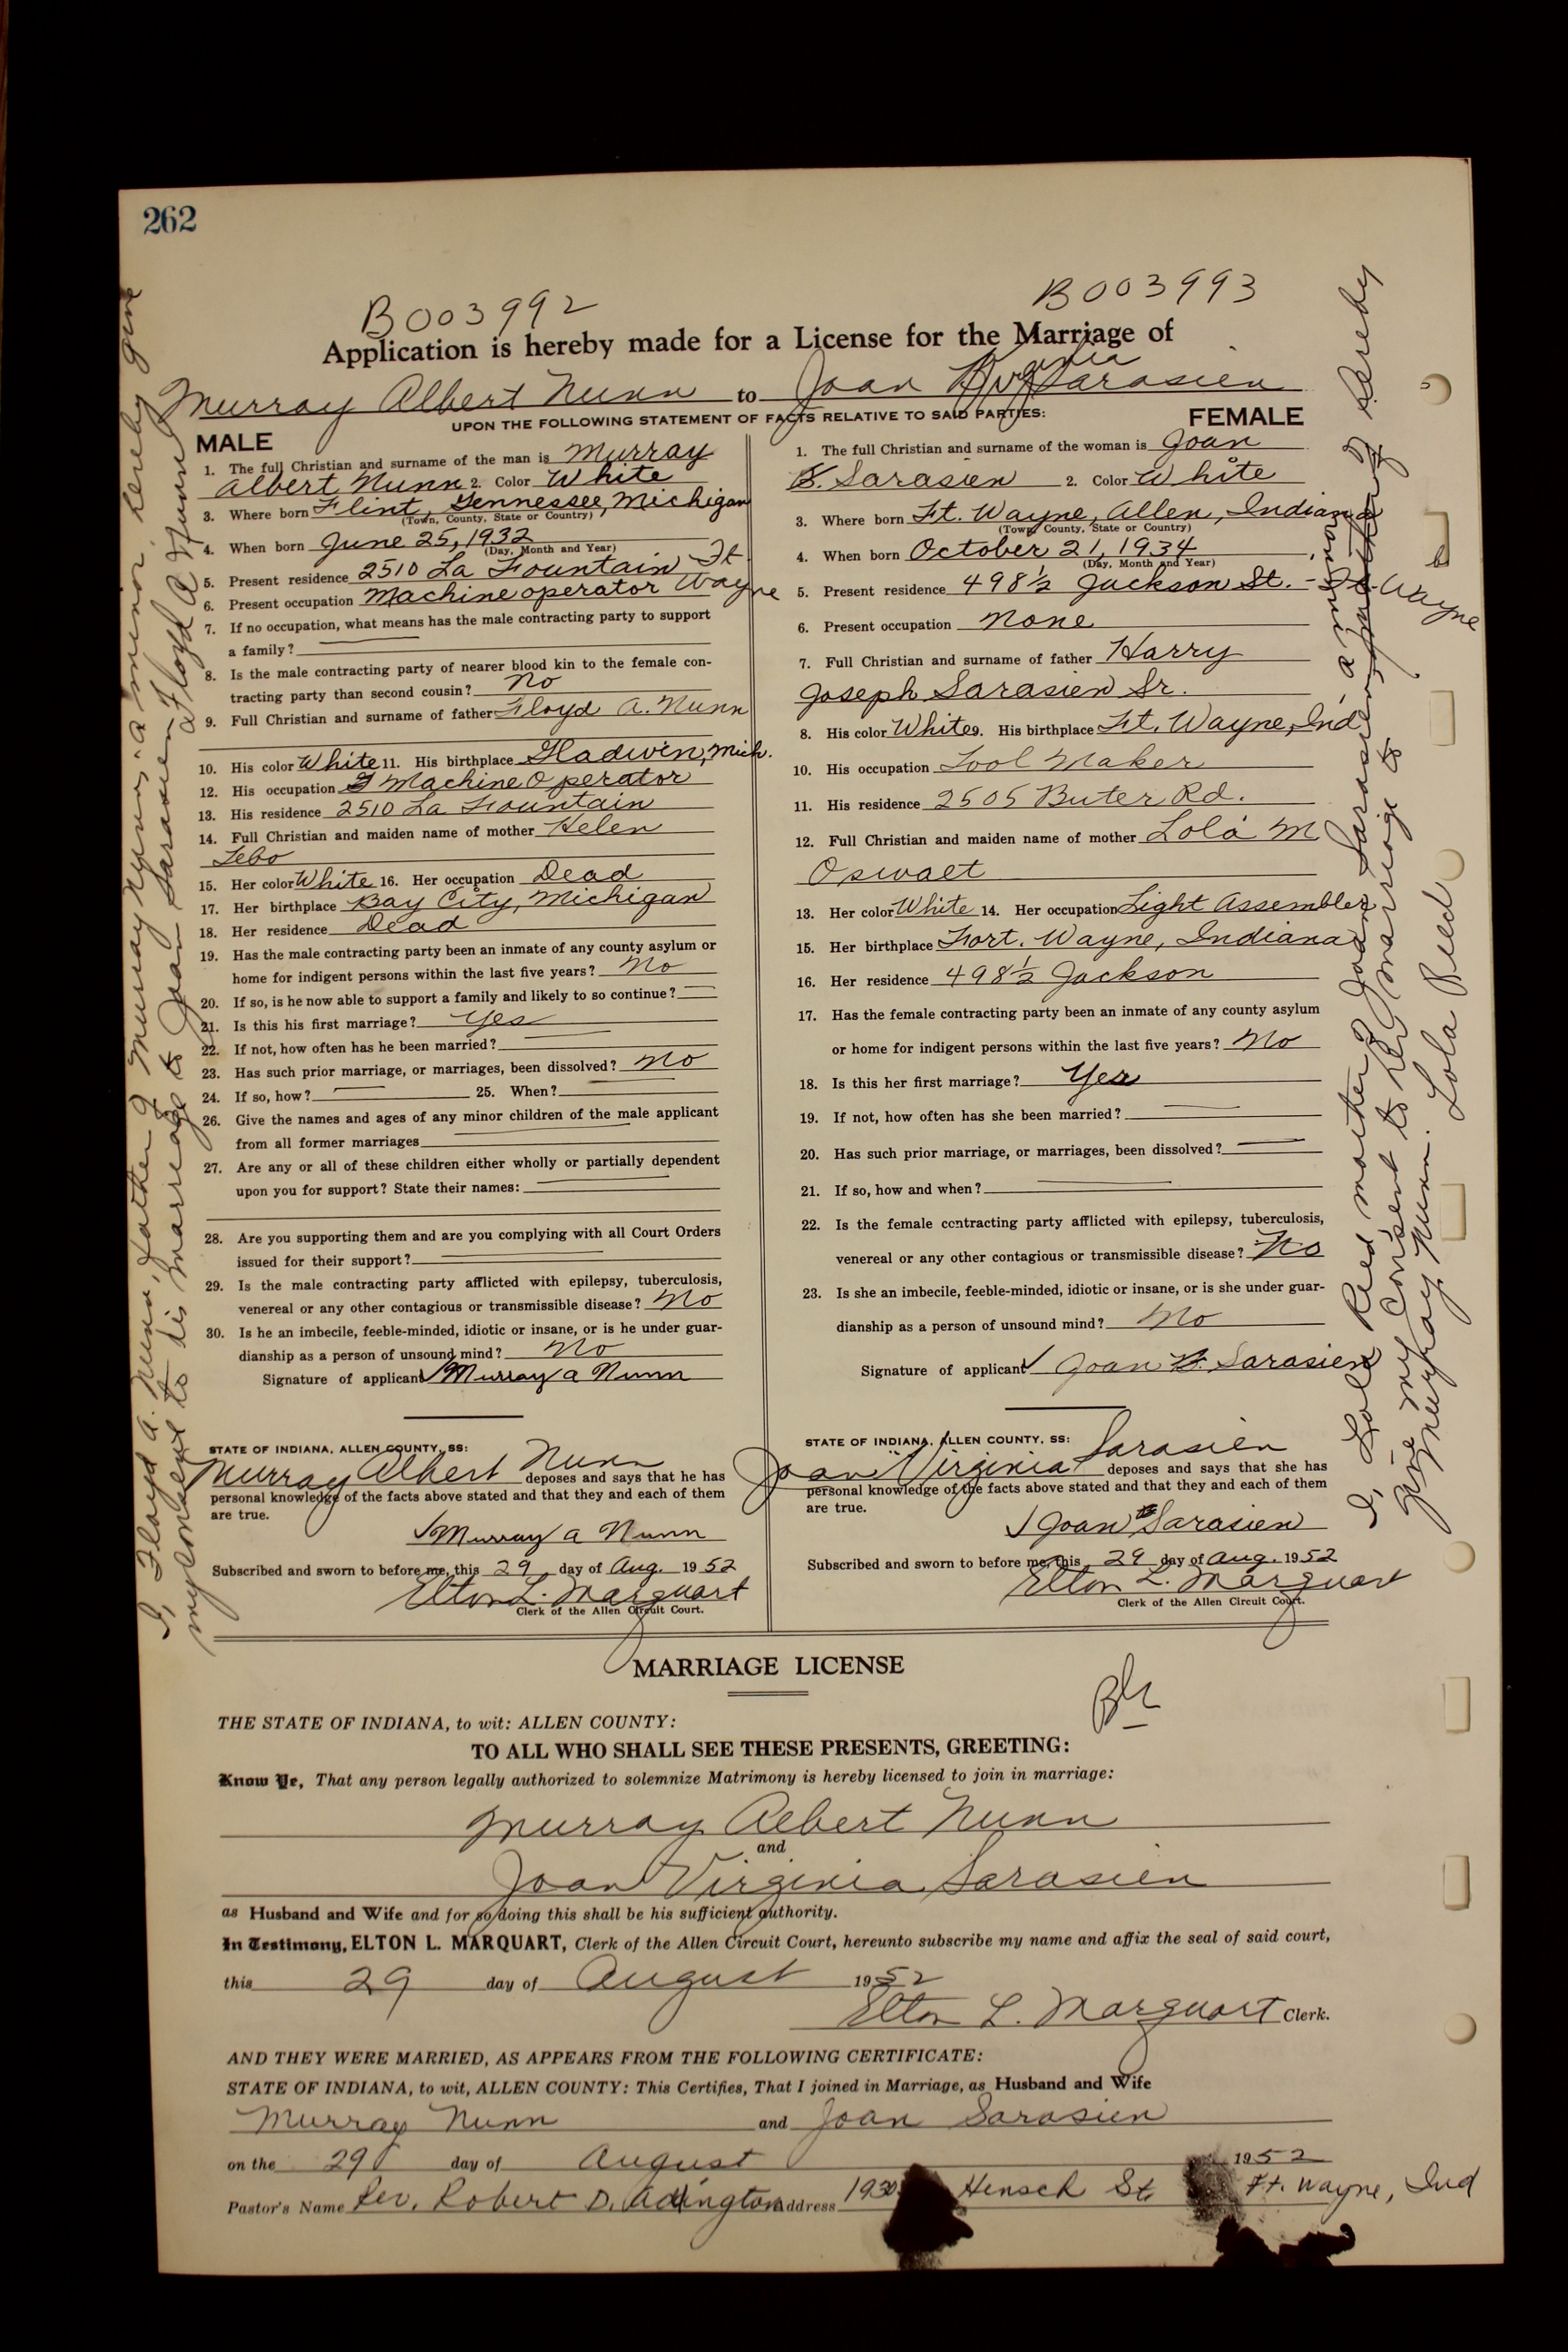 262
B003992
B003993
Application is hereby made for a License for the Marriage of
Murray Albert Nunn to Joan Virginia Sarasien
UPON THE FOLLOWING STATEMENT OF FACTS RELATIVE TO SAID PARTIES:
MALE
1. The full Christian and surname of the man is Murray
Albert Nunn 2. Color White
3. Where born Flint, Gennessee, Michigan
(Town, County, State or Country)
4. When born June 25, 1932
(Day, Month and Year)
5. Present residence 2510 La Fountain Ft
6. Present occupation Machine operator Wayne
7. If no occupation, what means has the male contracting party to support
a family?
8. Is the male contracting party of nearer blood kin to the female con-
tracting party than second cousin? No
9. Full Christian and surname of father Floyd A. Nunn
10. His color White 11. His birthplace Gladwin, Mich.
12. His occupation Machine Operator
13. His residence 2510 La Fountain
14. Full Christian and maiden name of mother Helen
Lebo
15. Her color White 16. Her occupation Dead
17. Her birthplace Bay City, Michigan
18. Her residence Dead
19. Has the male contracting party been an inmate of any county asylum or
home for indigent persons within the last five years? No
20. If so, is he now able to support a family and likely to so continue?
21. Is this his first marriage? Yes
22. If not, how often has he been married?
23. Has such prior marriage, or marriages, been dissolved? No
24. If so, how? 25. When?
26. Give the names and ages of any minor children of the male applicant
from all former marriages
27. Are any or all of these children either wholly or partially dependent
upon you for support? State their names:
28. Are you supporting them and are you complying with all Court Orders
issued for their support?
29. Is the male contracting party afflicted with epilepsy, tuberculosis,
venereal or any other contagious or transmissible disease? No
30. Is he an imbecile, feeble-minded, idiotic or insane, or is he under guar-
dianship as a person of unsound mind? No
Signature of applicant Murray A Nunn
STATE OF INDIANA, ALLEN COUNTY, SS:
Murray Albert Nunn deposes and says that he has
personal knowledge of the facts above stated and that they and each of them
are true.
Murray A Nunn
Subscribed and sworn to before me, this 29 day of Aug. 1952
Elton L. Marquart
Clerk of the Allen Circuit Court.
I, Floyd A. Nunn, father of Murray Nunn, a minor, hereby give
my consent to his marriage to Joan Sarasien. Floyd A Nunn
FEMALE
1. The full Christian and surname of the woman is Joan
V. Sarasien 2. Color White
3. Where born Ft. Wayne, Allen, Indiana
(Town, County, State or Country)
4. When born October 21, 1934
(Day, Month and Year)
5. Present residence 498½ Jackson St. - Ft. Wayne
6. Present occupation None
7. Full Christian and surname of father Harry
Joseph Sarasien Sr.
8. His color White 9. His birthplace Ft. Wayne, Ind
10. His occupation Tool Maker
11. His residence 2505 Buter Rd.
12. Full Christian and maiden name of mother Lola M
Oswalt
13. Her color White 14. Her occupation Light Assembler
15. Her birthplace Fort. Wayne, Indiana
16. Her residence 498½ Jackson
17. Has the female contracting party been an inmate of any county asylum
or home for indigent persons within the last five years? No
18. Is this her first marriage? Yes
19. If not, how often has she been married?
20. Has such prior marriage, or marriages, been dissolved?
21. If so, how and when?
22. Is the female contracting party afflicted with epilepsy, tuberculosis,
venereal or any other contagious or transmissible disease? No
23. Is she an imbecile, feeble-minded, idiotic or insane, or is she under guar-
dianship as a person of unsound mind? No
Signature of applicant Joan V. Sarasien
STATE OF INDIANA, ALLEN COUNTY, SS:
Joan Virginia Sarasien deposes and says that she has
personal knowledge of the facts above stated and that they and each of them
are true.
Joan Sarasien
Subscribed and sworn to before me, this 29 day of Aug. 1952
Elton L. Marquart
Clerk of the Allen Circuit Court.
I, Lola Reed mother of Joan Sarasien, a minor, hereby
give my consent to her marriage to
Murray Nunn. Lola Reed
MARRIAGE LICENSE
THE STATE OF INDIANA, to wit: ALLEN COUNTY:
TO ALL WHO SHALL SEE THESE PRESENTS, GREETING:
Know Ye, That any person legally authorized to solemnize Matrimony is hereby licensed to join in marriage:
Murray Albert Nunn
and
Joan Virginia Sarasien
as Husband and Wife and for so doing this shall be his sufficient authority.
In Testimony, ELTON L. MARQUART, Clerk of the Allen Circuit Court, hereunto subscribe my name and affix the seal of said court,
this 29 day of August 1952
Elton L. Marquart Clerk.
AND THEY WERE MARRIED, AS APPEARS FROM THE FOLLOWING CERTIFICATE:
STATE OF INDIANA, to wit, ALLEN COUNTY: This Certifies, That I joined in Marriage, as Husband and Wife
Murray Nunn and Joan Sarasien
on the 29 day of August 1952
Pastor's Name Rev. Robert D. Addington Address 1930 Hensch St. Ft. Wayne, Ind